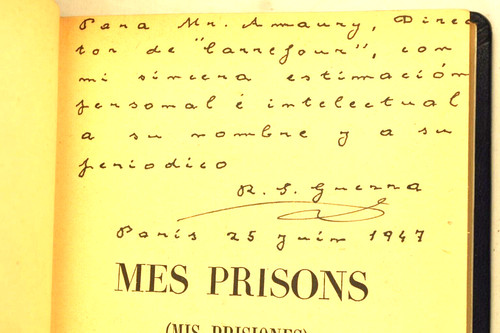 Para Mr. Amaury, Direc
tor de "Carrefour", con
mi sincera estimación
personal é intelectual
a su nombre y a su
periodico
R. S. Guerra
París 25 Juin 1947
MES PRISONS
(MIS PRISIONES)